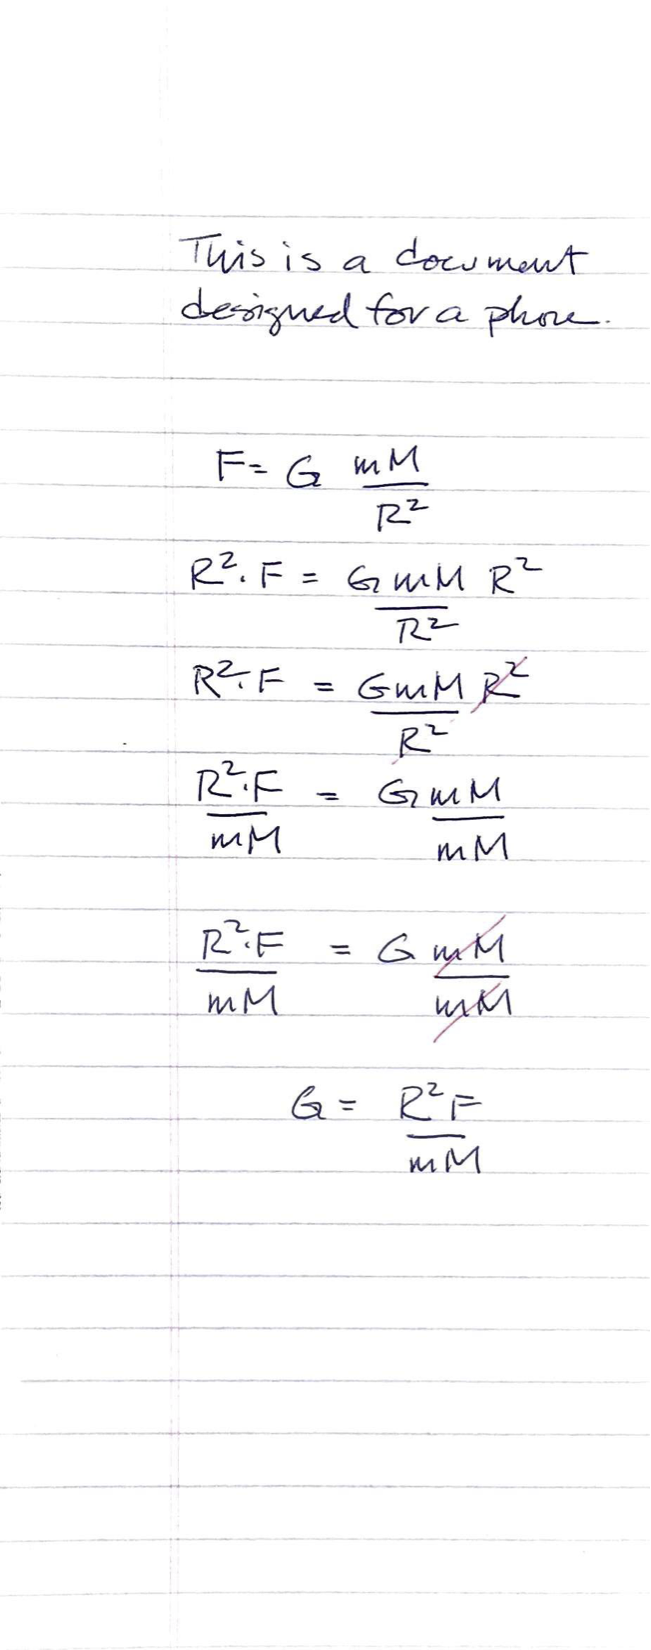 This is a document
designed for a phone.
F = G mM
R²
R². F = GmM R²
R²
R². F = GmM R²
R²
R². F = G mM
mM mM
R². F = G mM
mM mM
G = R²F
mM